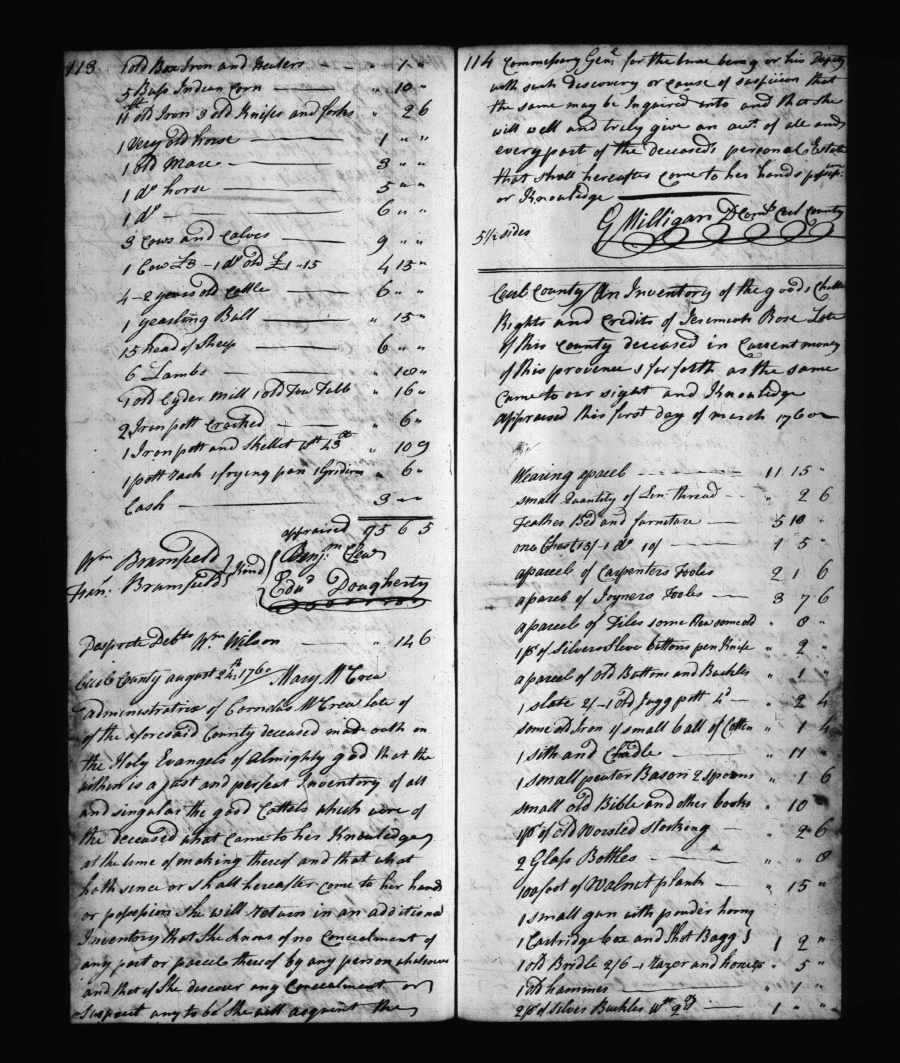 113
1 old Box Iron and Heaters — " 1 "
5 Buss Indian Corn — " 10 "
11 lb old Iron 3 old Knifes and forks " 2 6
1 Very old horse — 1 " "
1 old Mare — 3 " "
1 do horse — 5 " "
1 do — 6 " "
3 Cows and Calves — 9 " "
1 Cow £3 - 1 do old £1..15 4 15 "
4 - 2 years old Cattle — 6 " "
1 yearling Bull — " 15 "
15 head of Sheep — 6 " "
6 Lambs — " 18 "
1 old Cyder mill 1 old Tubb " 16 "
2 Iron pott Cracked — " 6 "
1 Iron pott and Skellet wt " 10 9
1 pott rack 1 frying pan 1 Gridiron " 6 "
Cash — 3 " "
appraised 95 6 5
Wm Bramfield
Fran: Bramfield
Benjm
Edwd Dougherty
Desperate Debts Wm Wilson — " 14 6
Cecil County august 24th 1760 Mary McCrea
administratrix of Cornelius McCrea late of
of the aforesaid County deceased made oath on
the Holy Evangels of Almighty god that the
within is a just and perfect Inventory of all
and singular the good Cattels which were of
the deceased what came to his Knowledge
at the time of making thereof and that what
hath since or shall hereafter come to her hand
or possession she will return in an additional
Inventory that She knows of no Concealment of
any part or parcel thereof by any person whatsoever
and that if She discover any Concealment or
suspect any to be She will acquint the
114
Commessary Genl for the time being or his Deputy
with such discovery or cause of suspicion that
the same may be Inquired into and that she
will well and truly give an act. of all and
every part of the deceaseds personal Estate
that shall hereafter come to her hands possession
or Knowledge
5 1/2 sides G Milligan D Comry Cecil County
Cecil County An Inventory of the goods Chattels
Rights and Credits of Jeremiah Rose Late
of this County deceased in Current money
of this provence so far forth as the same
Came to our sight and Knowledge
appraised this first day of march 1760
Wearing aparel — 11 15 "
small Quantity of Lin: thread — " 2 6
Feather Bed and furniture — 5 10 "
one Chest 15/- 1 do 10/ — 1 5 "
a parcel of Carpenters Tooles 2 1 6
a parcel of Joyners Tooles — 3 7 6
a parcel of Files some new some old " 8 "
1 pr of Silver Sleve buttons pen Knife " 2 "
a parcel of old Buttons and Buckles " 1 "
1 slate 2/- 1 old Jugg pott 4d — " 2 4
some old Iron & small ball of Cotten " 1 4
1 sith and Cradle — " 11 "
1 small peuter Bason 2 spoons " 1 6
small old Bible and other books " 10
1 pr of old Worsted stocking — " 2 6
2 Glass Bottles — " " 8
100 foot of Walnut plank — " 15 "
1 small gun with powder horn
1 Cartridge box and Shot Bagg } 1 2 "
1 old Bridle 2/6 - 1 razor and hone " 5 "
1 old hammer — " 1 "
2 pr of Silver Buckles wt — 1 " "